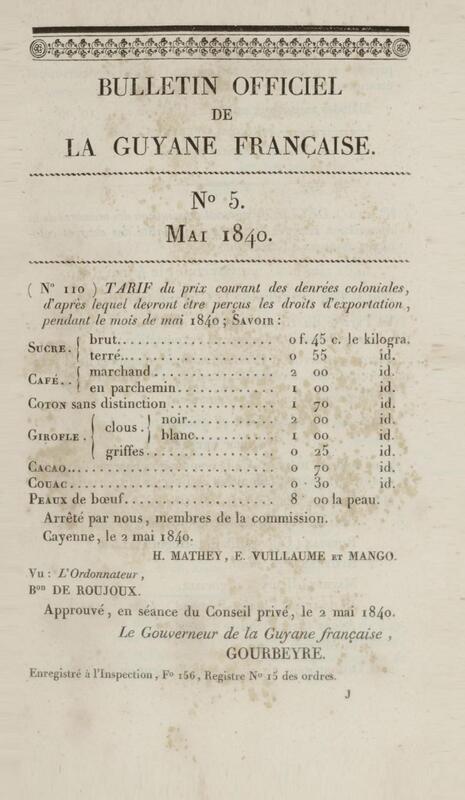 BULLETIN OFFICIEL
DE
LA GUYANE FRANÇAISE.
Nº 5.
MAI 1840.
( Nº 110 ) TARIF du prix courant des denrées coloniales,
d'après lequel devront être perçus les droits d'exportation,
pendant le mois de mai 1840; SAVOIR :
SUCRE. { brut.................. 0 f. 45 c. le kilogra.
{ terré.................. 0 55 id.
CAFÉ.. { marchand.................. 2 00 id.
{ en parchemin.............. 1 00 id.
COTON sans distinction............... 1 70 id.
GIROFLE. { clous. } noir............ 2 00 id.
} blanc........... 1 00 id.
{ griffes.................. 0 25 id.
CACAO........................... 0 70 id.
COUAC........................... 0 30 id.
PEAUX de bœuf...................... 8 00 la peau.
Arrêté par nous, membres de la commission.
Cayenne, le 2 mai 1840.
H. MATHEY, E. VUILLAUME ET MANGO.
Vu : L'Ordonnateur,
Bon DE ROUJOUX.
Approuvé, en séance du Conseil privé, le 2 mai 1840.
Le Gouverneur de la Guyane française,
GOURBEYRE.
Enregistré à l'Inspection, Fº 156, Registre Nº 15 des ordres.
J